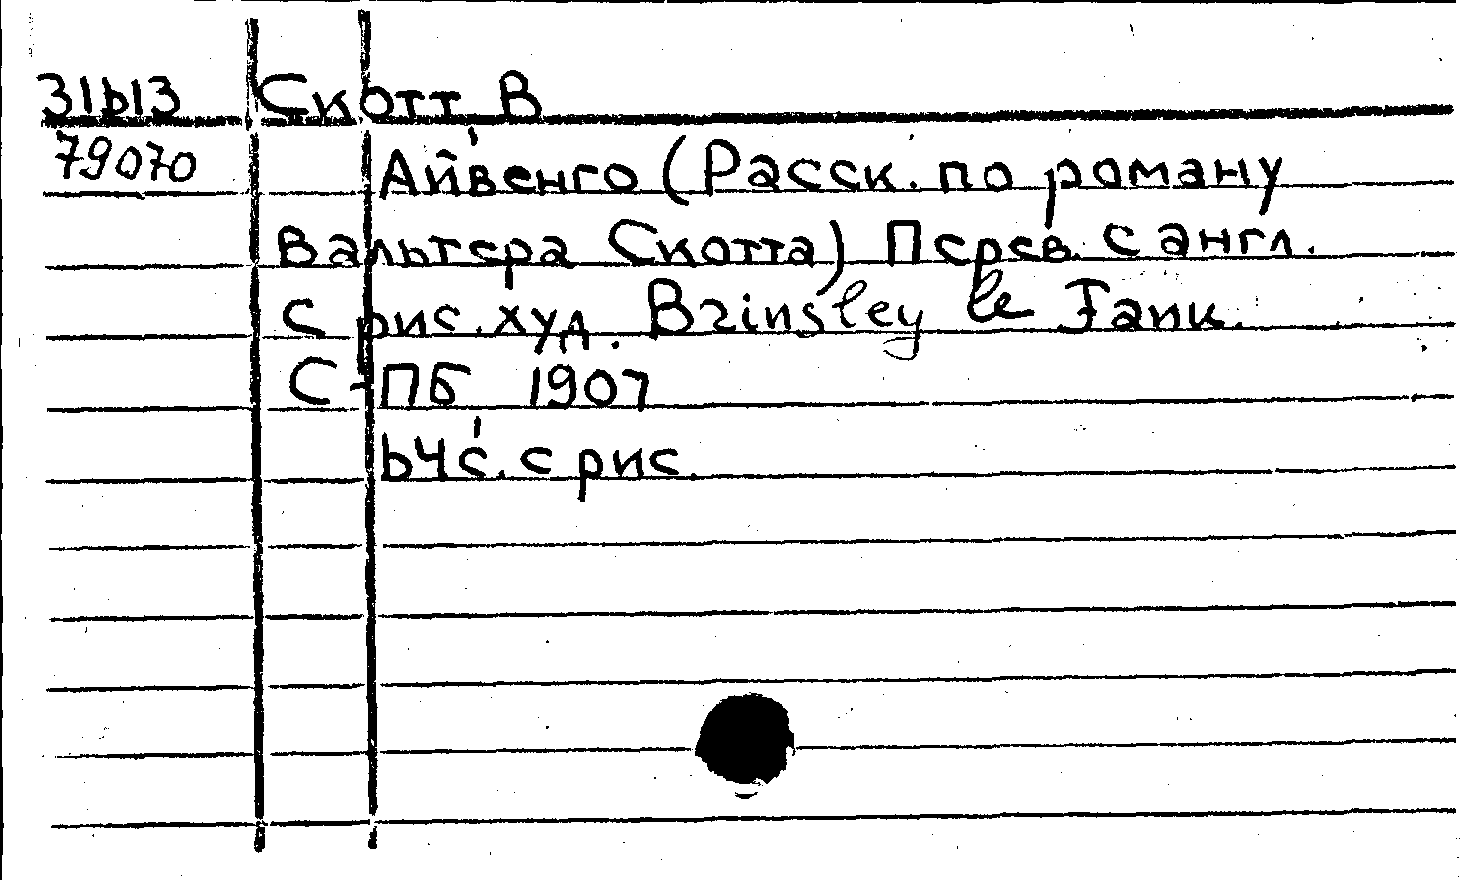 31613 Скотт, В
79070 Айвенго (Расск. по роману
Вальтера Скотта) Перев. с англ.
С рис. худ. Brinsley le Fanu.
С-ПБ 1907
64с. с рис.